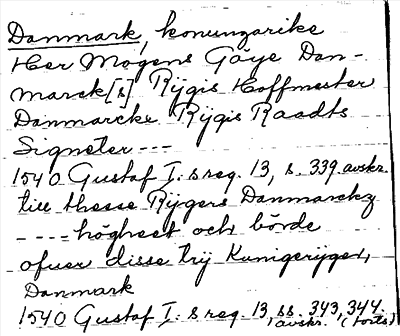 Danmark, konungarike
Her Mogens Göye Dan-
marck[s] Rijgis Hoffmester
Danmarcks Rijgis Raadts
Signeter ---
1540 Gustaf I:s reg. 13, s. 339 avskr.
till thesse Rijgers Danmarckz
---- höghest och börde
ofuer disse trij Kunigerijger,
Danmark
1540 Gustaf I:s reg. 13, ss. 343, 344
avskr. (forts.)